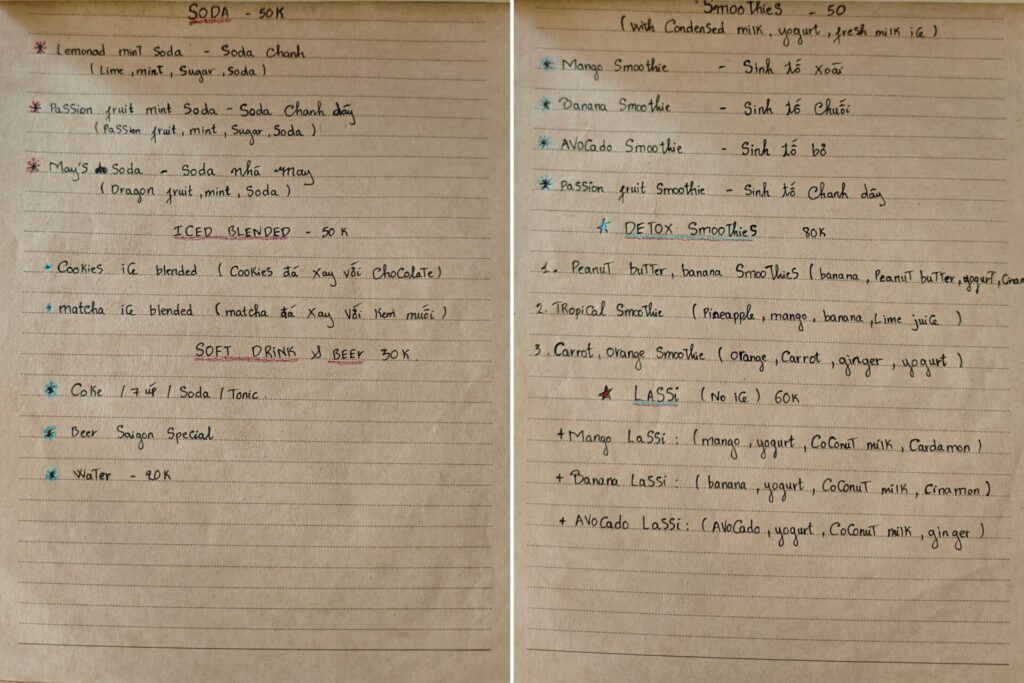 SODA - 50K
* Lemonad mint Soda - Soda Chanh
(Lime, mint, Sugar, Soda)
* Passion fruit mint Soda - Soda Chanh dây
(Passion fruit, mint, Sugar, Soda)
* May's Soda - Soda nhà may
(Dragon fruit, mint, Soda)
ICED BLENDED - 50K
Cookies ice blended (Cookies đá xay với Chocolate)
matcha ice blended (matcha đá xay với kem muối)
SOFT DRINK & BEER 30K.
* Coke / 7 úp / Soda / Tonic.
* Beer Saigon Special
* Water - 20K
Smoothies - 50
(with Condensed milk, yogurt, fresh milk ice)
* Mango Smoothie - Sinh tố xoài
* Banana Smoothie - Sinh tố Chuối
* Avocado Smoothie - Sinh tố bơ
* Passion fruit Smoothie - Sinh tố Chanh dây
DETOX Smoothies 80K
1. Peanut butter, banana Smoothies (banana, Peanut butter, yogurt, Cinam
2. Tropical Smoothie (Pineapple, mango, banana, Lime juice)
3. Carrot, orange Smoothie (orange, Carrot, ginger, yogurt)
LASSi (No ice) 60K
+ Mango Lassi: (mango, yogurt, Coconut milk, Cardamon)
+ Banana Lassi: (banana, yogurt, Coconut milk, Cinamon)
+ Avocado Lassi: (Avocado, yogurt, Coconut milk, ginger)